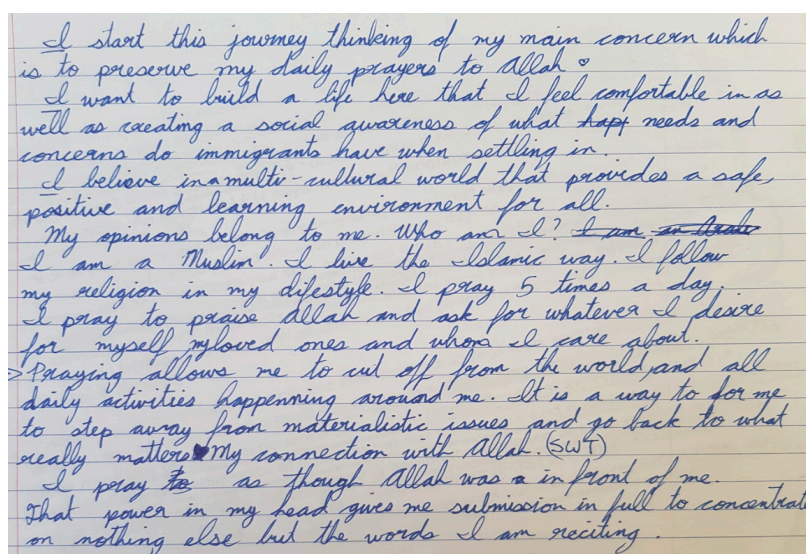 I start this journey thinking of my main concern which
is to preserve my daily prayers to Allah.
I want to build a life here that I feel comfortable in as
well as creating a social awareness of what hapt needs and
concerns do immigrants have when settling in.
I believe in a multi-cultural world that provides a safe,
positive and learning environment for all.
My opinions belong to me. Who am I? I am an Arab
I am a Muslim. I live the Islamic way. I follow
my religion in my difestyle. I pray 5 times a day.
I pray to praise Allah and ask for whatever I desire
for myself my loved ones and whom I care about.
> Praying allows me to cut off from the world, and all
daily activities happenning around me. It is a way to for me
to step away from materialistic issues and go back to what
really matters ♥ My connection with Allah. (SWT)
I pray to as though Allah was in front of me.
That power in my head gives me submission in full to concentrate
on nothing else but the words I am reciting.